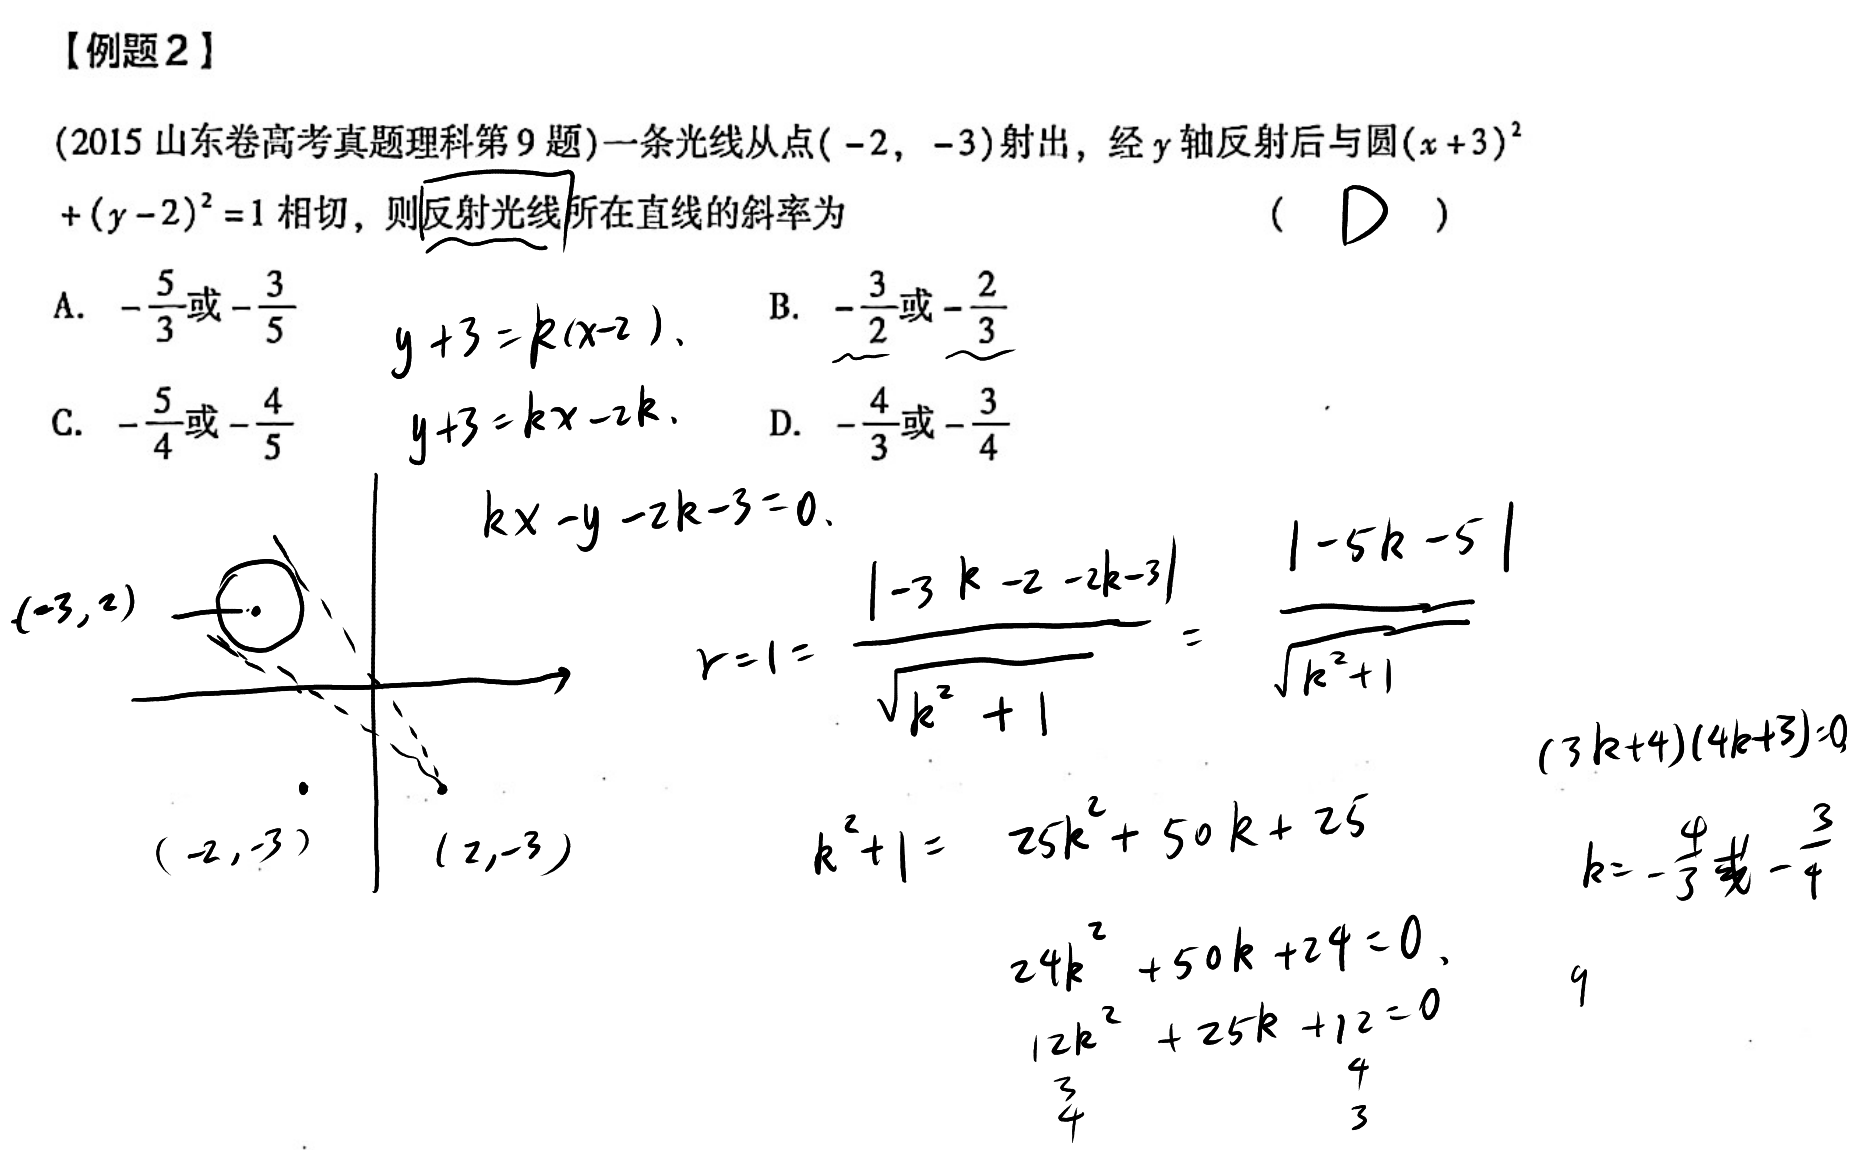 【例题2】
(2015 山东卷高考真题理科第 9 题)一条光线从点( -2， -3)射出，经 y 轴反射后与圆(x+3)²
+(y-2)²=1 相切，则反射光线所在直线的斜率为 ( D )
A. -5/3或-3/5
B. -3/2或-2/3
y+3=k(x-2).
C. -5/4或-4/5
D. -4/3或-3/4
y+3=kx-2k.
kx-y-2k-3=0.
(-3,2)
r=1=|-3k-2-2k-3|/√(k²+1)=|-5k-5|/√(k²+1)
(-2,-3)
(2,-3)
k²+1= 25k²+50k+25
24k²+50k+24=0.
12k²+25k+12=0
3 4
4 3
(3k+4)(4k+3)=0
k=-4/3或-3/4
9